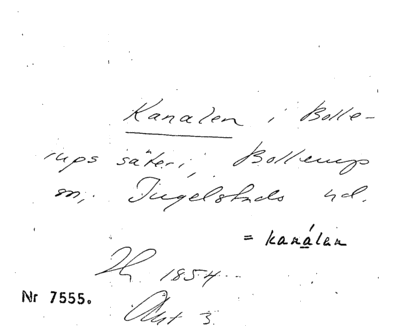 Kanalen i Bolle-
rups säteri, Bollerups
sn, Ingelstads hd.
= kanálen
1854
Nr 7555.
Akt 3